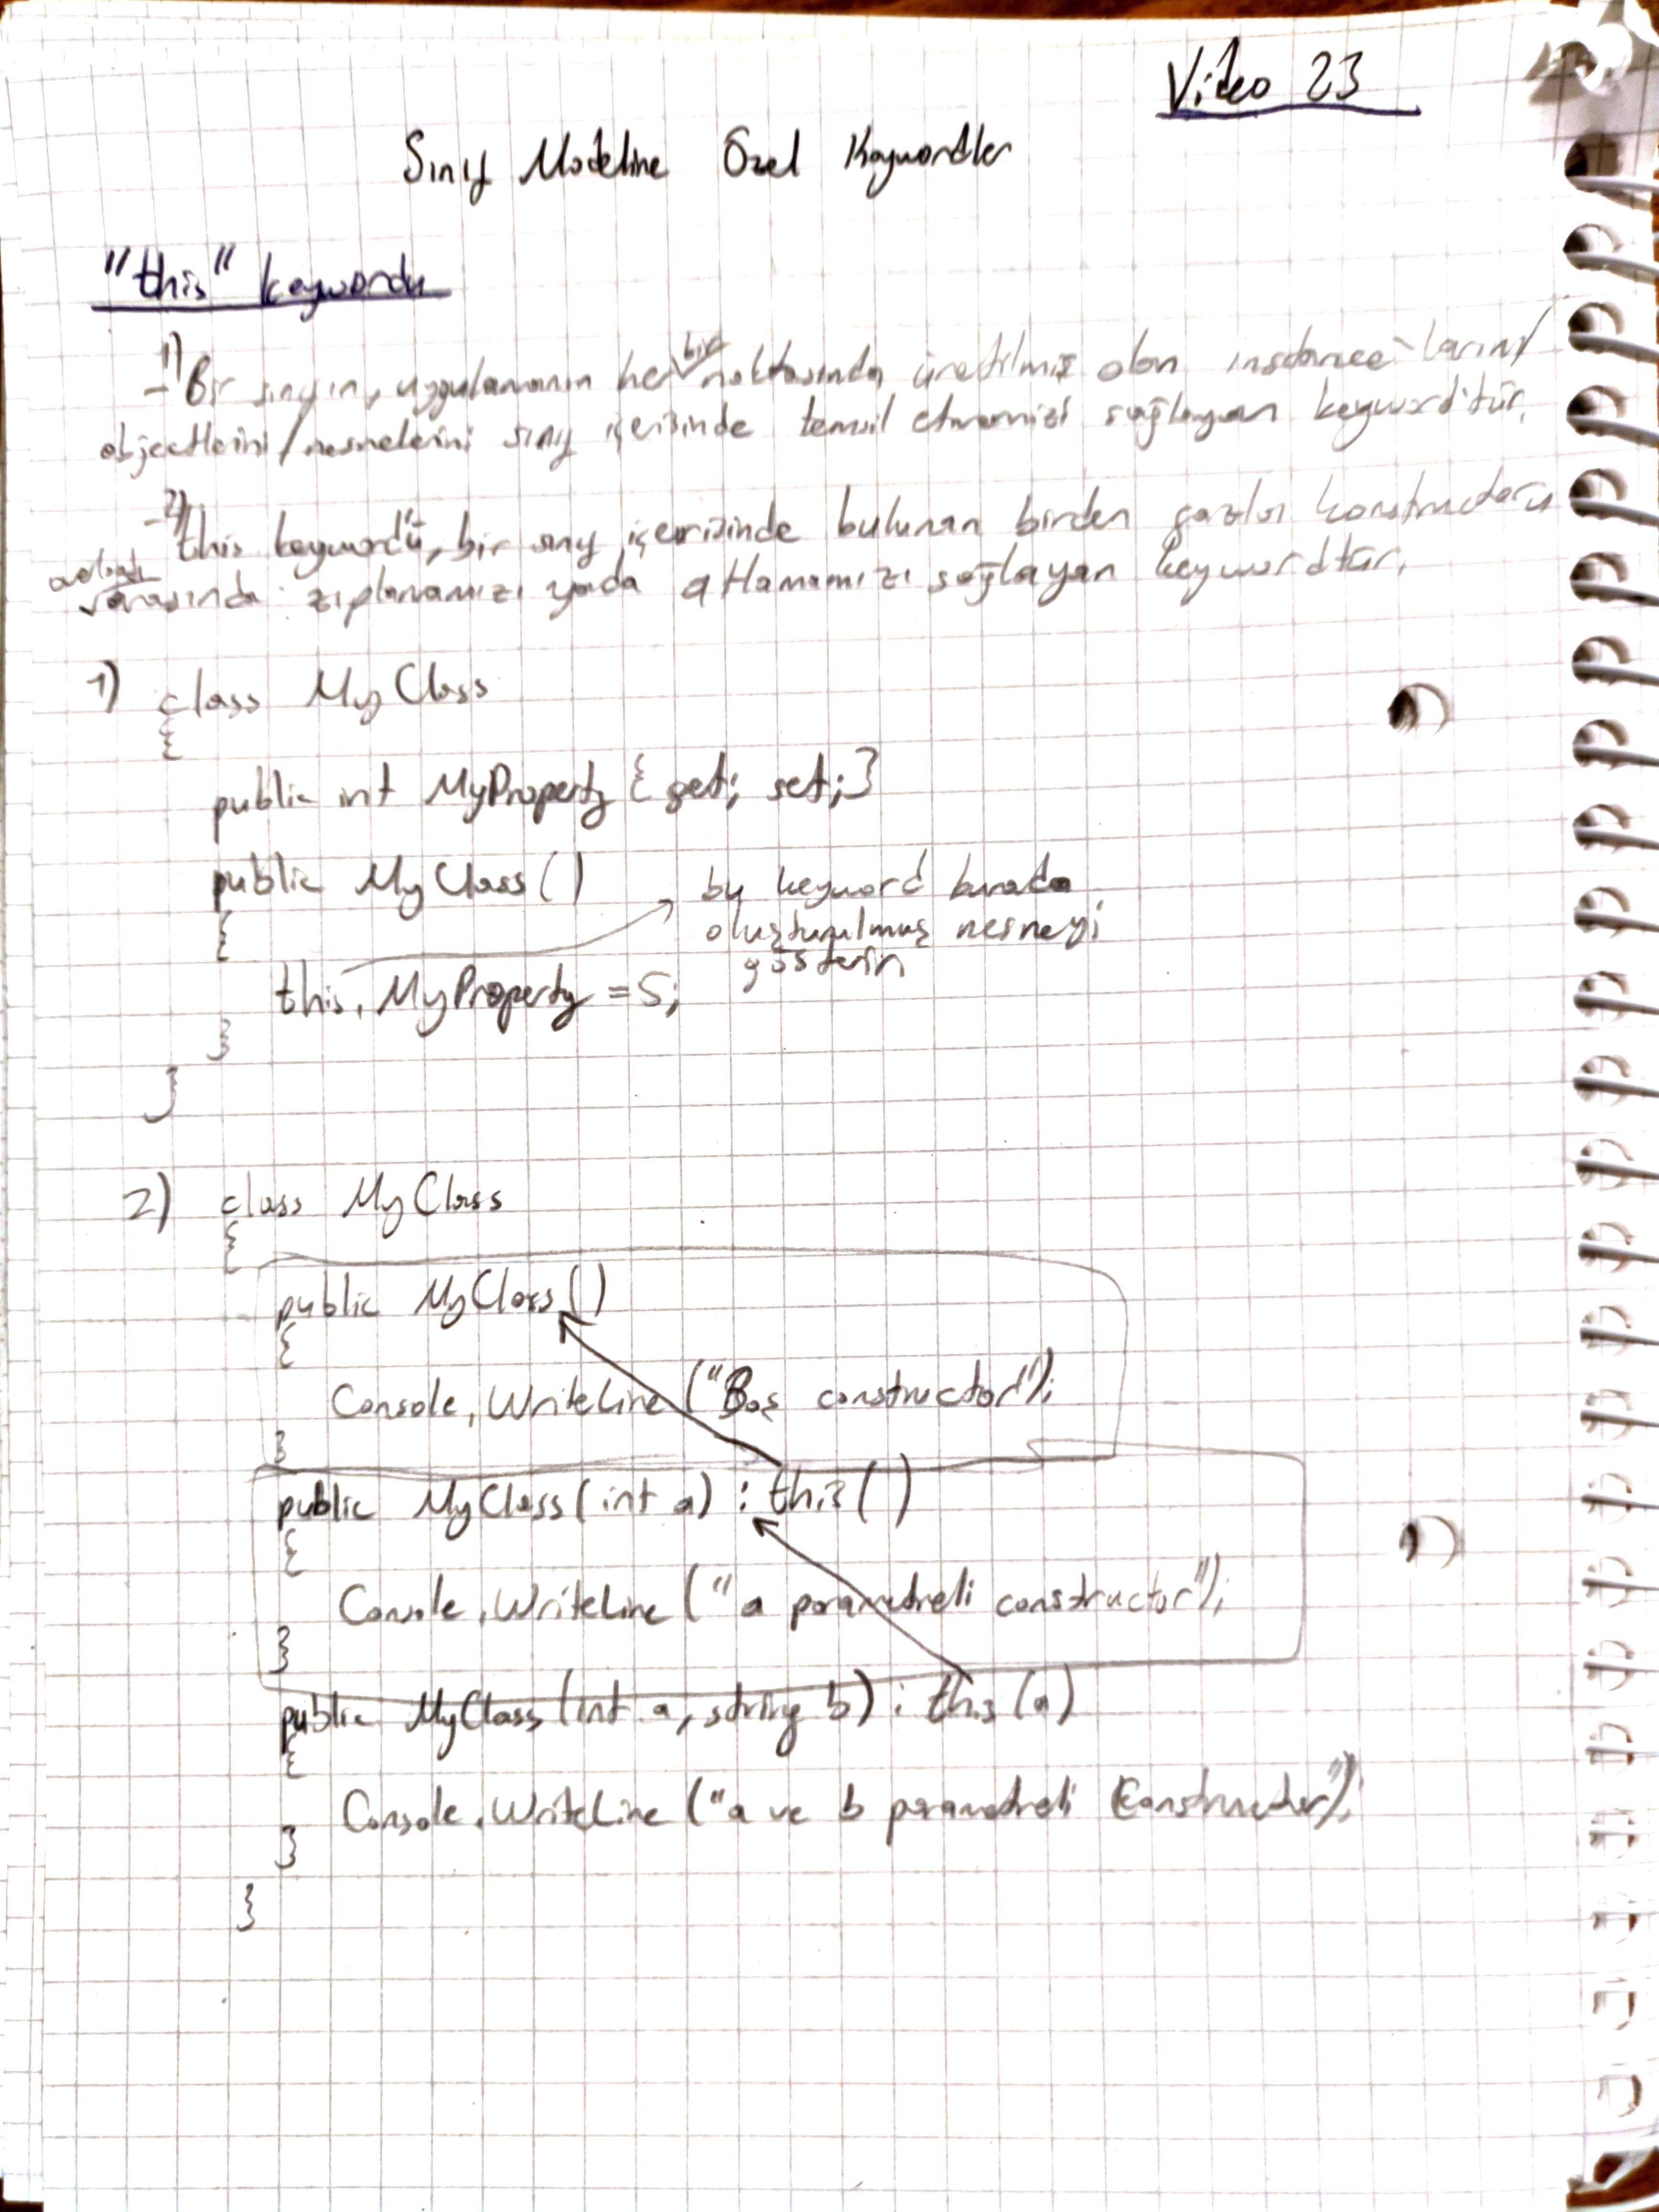 Video 23
Sınıf Modeline Özel Keywordler
"this" keywordu
-1) Bir sınıfın, uygulamanın her bir noktasında üretilmiş olan instance'larını/
objectlerini/nesnelerini sınıf içerisinde temsil etmemizi sağlayan keyword'tür.
-2) this keyword'ü, bir sınıf içerisinde bulunan birden fazla constructer
arasında zıplamamızı yada atlamamızı sağlayan keywordtür.
1) class MyClass
{
public int MyProperty { get; set; }
public MyClass() bu keyword burada
{ oluşturulmuş nesneyi
gösterir
this.MyProperty = 5;
}
}
2) class MyClass
{
public MyClass()
{
Console.WriteLine ("Boş constructor");
}
public MyClass(int a) : this()
{
Console.WriteLine ("a parametreli constructor");
}
public MyClass(int a, string b) : this(a)
{
Console.WriteLine ("a ve b parametreli Constructor");
}
}